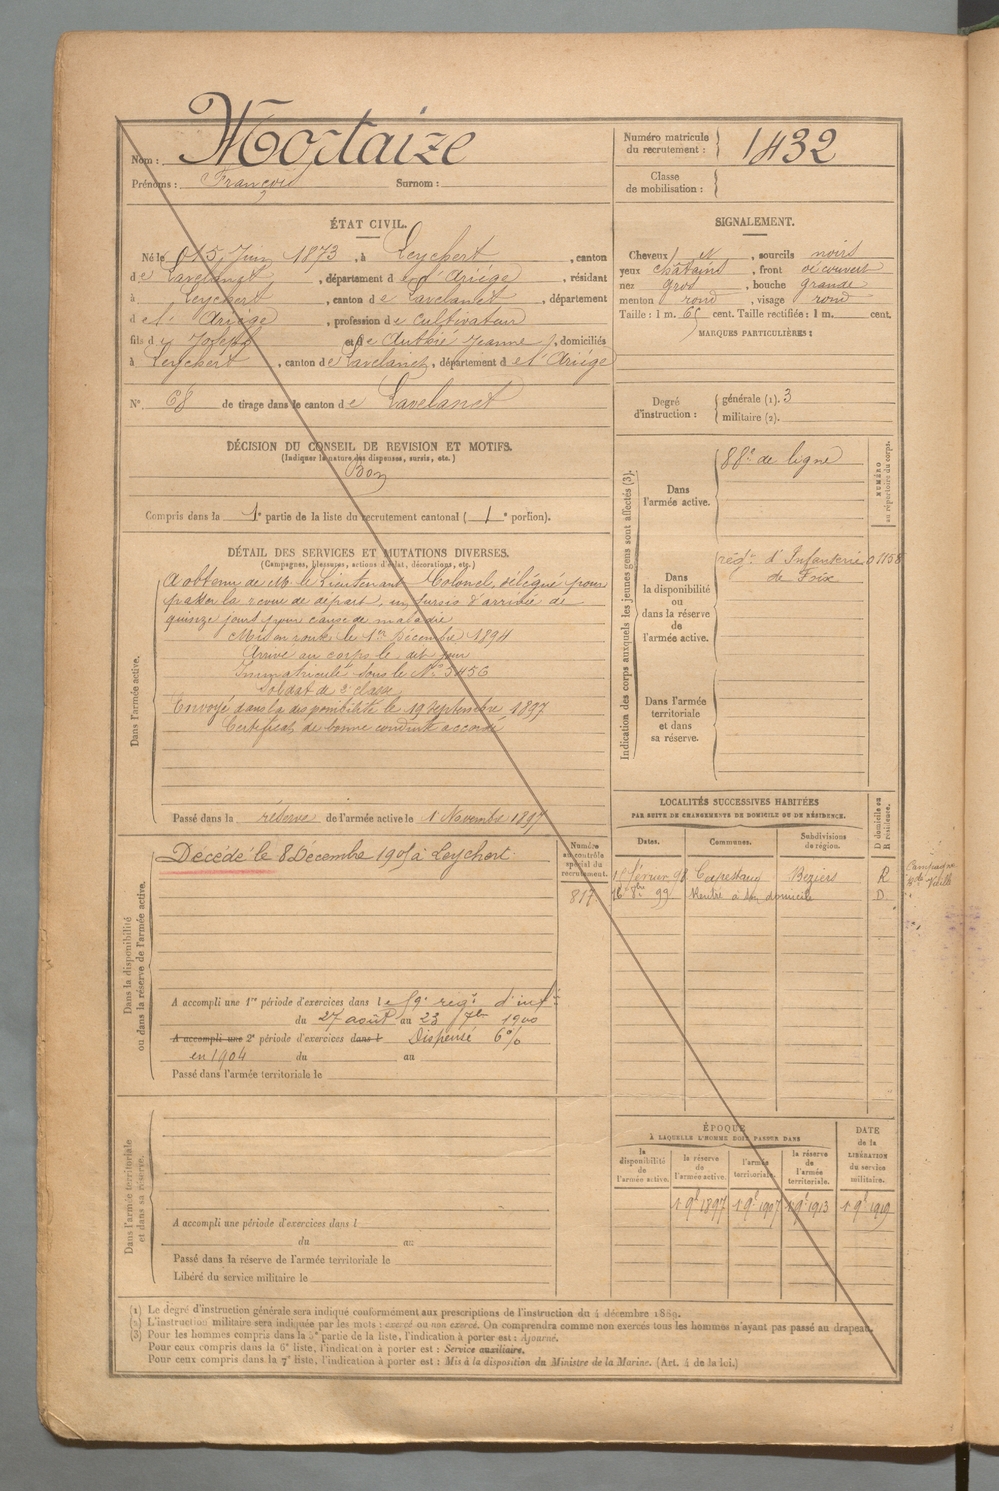 Nom : Mortaize
Prénoms : François Surnom :
Numéro matricule du recrutement : 1432
Classe de mobilisation :
ÉTAT CIVIL.
Né le 15 Juin 1873, à Leychert, canton
de Lavelanet, département de l'Ariège, résidant
à Leychert, canton de Lavelanet, département
de l'Ariège, profession de cultivateur
fils de Joseph et de Authié Jeanne, domiciliés
à Leychert, canton de Lavelanet, département de l'Ariège
N° 68 de tirage dans le canton de Lavelanet
SIGNALEMENT.
Cheveux et, sourcils noirs
yeux châtains, front découvert
nez gros, bouche grande
menton rond, visage rond
Taille : 1 m. 65 cent. Taille rectifiée : 1 m. cent.
MARQUES PARTICULIÈRES :
Degré d'instruction : générale (1). 3
militaire (2).
DÉCISION DU CONSEIL DE REVISION ET MOTIFS.
(Indiquer la nature des dispenses, sursis, etc.)
Bon
Compris dans la 1e partie de la liste du recrutement cantonal (1e portion).
DÉTAIL DES SERVICES ET MUTATIONS DIVERSES.
(Campagnes, blessures, actions d'éclat, décorations, etc.)
Dans l'armée active.
A obtenu de M. le Lieutenant Colonel, délégué pour
passer la revue de départ, un sursis d'arrivée de
quinze jours pour cause de maladie
Mis en route le 1er Décembre 1894
Arrivé au corps le dit jour
Immatriculé sous le N° 3456
Soldat de 2e classe
Envoyé dans la disponibilité le 19 Septembre 1897
Certificat de bonne conduite accordé
Passé dans la réserve de l'armée active le 1 Novembre 1897
Indication des corps auxquels les jeunes gens sont affectés (3).
NUMÉRO au répertoire du corps.
Dans l'armée active.
88e de ligne
Dans la disponibilité ou dans la réserve de l'armée active.
régt d'Infanterie 01158
de Foix
Dans l'armée territoriale et dans sa réserve.
LOCALITÉS SUCCESSIVES HABITÉES
PAR SUITE DE CHANGEMENTS DE DOMICILE OU DE RÉSIDENCE.
D domicile ou R résidence.
Dates. Communes. Subdivisions de région.
février 98 Capestang Béziers R
16 8bre 99 Rentré à son domicile D.
Campagne
Dans la disponibilité ou dans la réserve de l'armée active.
Numéro au contrôle spécial du recrutement.
817
Décédé le 8 Décembre 1905 à Leychert.
A accompli une 1re période d'exercices dans le 59e régt d'inf.
du 27 août au 23 7bre 1900
A accompli une 2e période d'exercices dans l Dispensé 6%
en 1904 du au
Passé dans l'armée territoriale le
Dans l'armée territoriale et dans sa réserve.
A accompli une période d'exercices dans l
du au
Passé dans la réserve de l'armée territoriale le
Libéré du service militaire le
ÉPOQUE
À LAQUELLE L'HOMME DOIT PASSER DANS
la disponibilité de l'armée active.
la réserve de l'armée active.
l'armée territoriale.
la réserve de l'armée territoriale.
DATE de la LIBÉRATION du service militaire.
1 9e 1897 1 9e 1907 1 9e 1913 1 9e 1919
(1) Le degré d'instruction générale sera indiqué conformément aux prescriptions de l'instruction du 4 décembre 1889.
(2) L'instruction militaire sera indiquée par les mots : exercé ou non exercé. On comprendra comme non exercés tous les hommes n'ayant pas passé au drapeau.
(3) Pour les hommes compris dans la 5e partie de la liste, l'indication à porter est : Ajourné.
Pour ceux compris dans la 6e liste, l'indication à porter est : Service auxiliaire.
Pour ceux compris dans la 7e liste, l'indication à porter est : Mis à la disposition du Ministre de la Marine. (Art. 4 de la loi.)